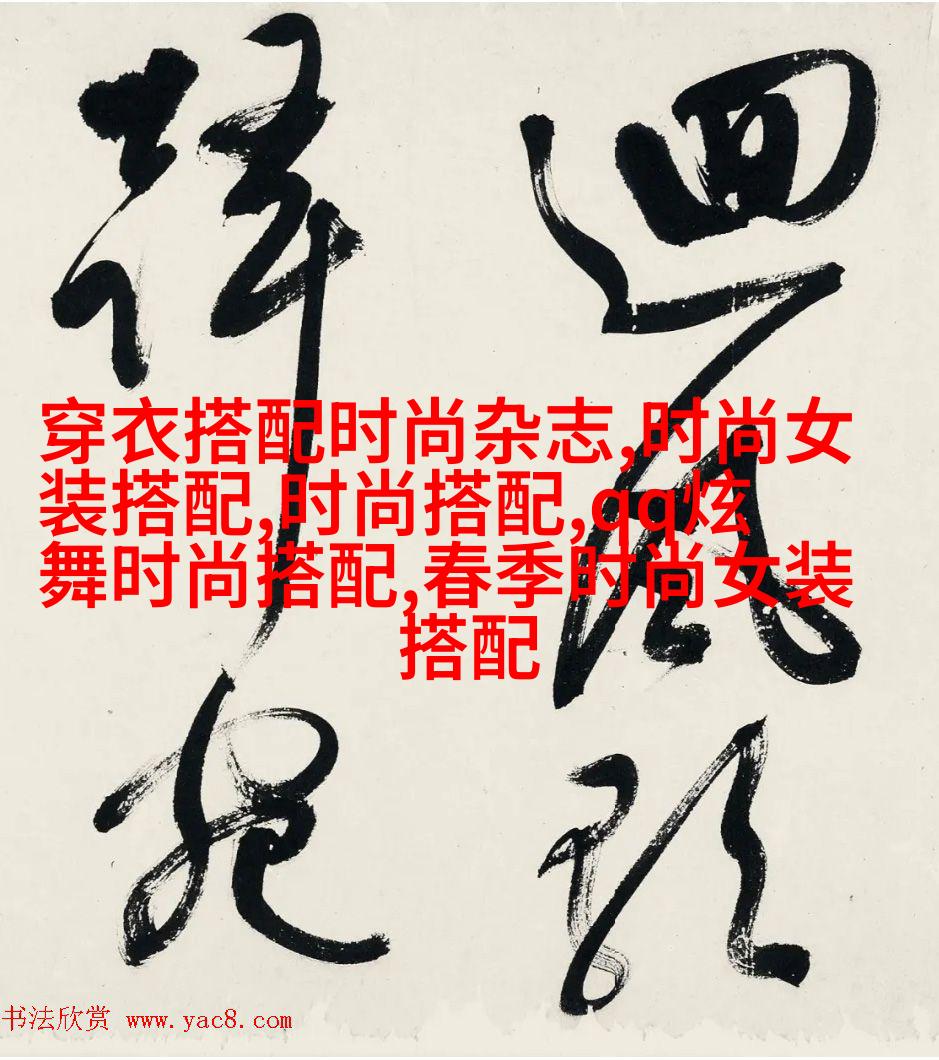 穿衣搭配时尚杂志,时尚女
装搭配,时尚搭配,qq炫
舞时尚搭配,春季时尚女装
搭配
迴風
书法欣赏 www.yac8.com